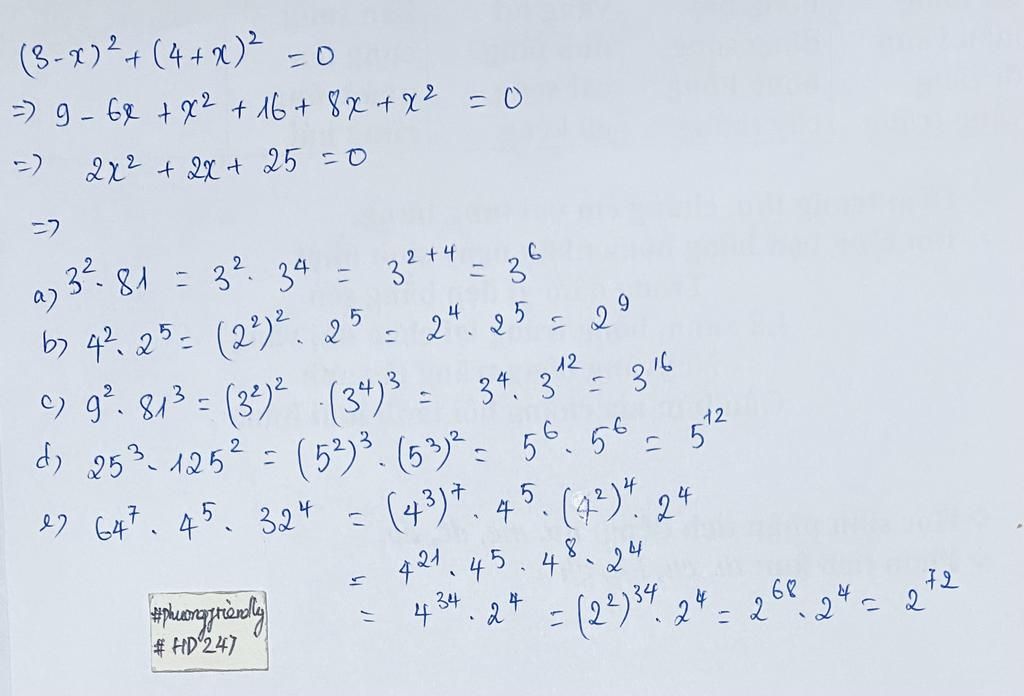 (3-x)² + (4+x)² = 0
=> 9 - 6x + x² + 16 + 8x + x² = 0
=> 2x² + 2x + 25 = 0
=>
a) 3² . 81 = 3² . 3⁴ = 3²⁺⁴ = 3⁶
b) 4² . 2⁵ = (2²)² . 2⁵ = 2⁴ . 2⁵ = 2⁹
c) 9² . 81³ = (3²)² . (3⁴)³ = 3⁴ . 3¹² = 3¹⁶
d) 25³ . 125² = (5²)³ . (5³)² = 5⁶ . 5⁶ = 5¹²
e) 64⁷ . 4⁵ . 32⁴ = (4³)⁷ . 4⁵ . (4²)⁴ . 2⁴
= 4²¹ . 4⁵ . 4⁸ . 2⁴
= 4³⁴ . 2⁴ = (2²)³⁴ . 2⁴ = 2⁶⁸ . 2⁴ = 2⁷²
#phuongfriendly
# HD 247